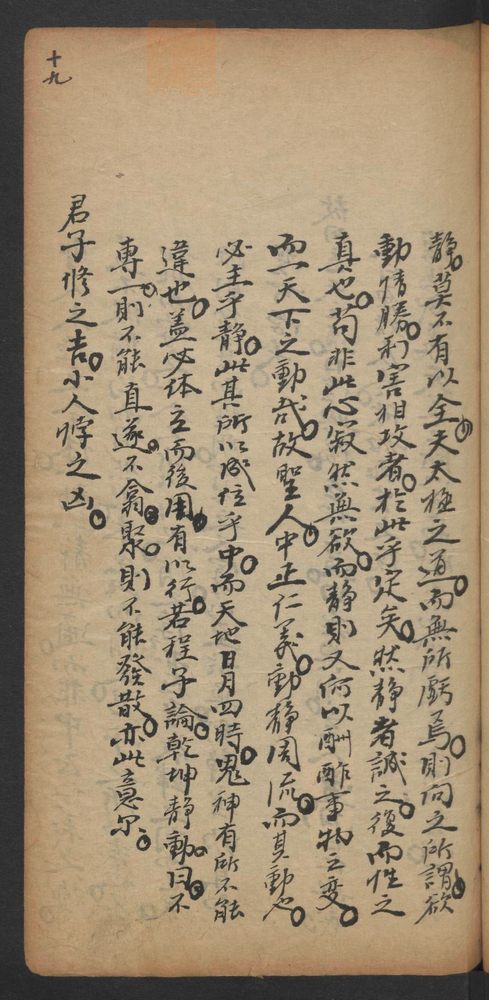 十九
靜。莫不有以全夫太極之道。而無所虧焉。則向之所謂欲
動情勝。利害相攻者。於此乎定矣。然靜者誠之復。而性之
真也。苟非此心寂然無欲。而靜則又何以酬酢事物之變。
而一天下之動哉。故聖人。中正仁義。動靜周流。而其動也。
必主乎靜。此其所以成位乎中。而天地日月四時。鬼神有所不能
違也。蓋必体立而後用。有以行。若程子論乾坤靜動。曰。不
專一。則不能直遂。不翕聚。則不能發散。亦此意尔。
君子修之吉。小人悖之凶。